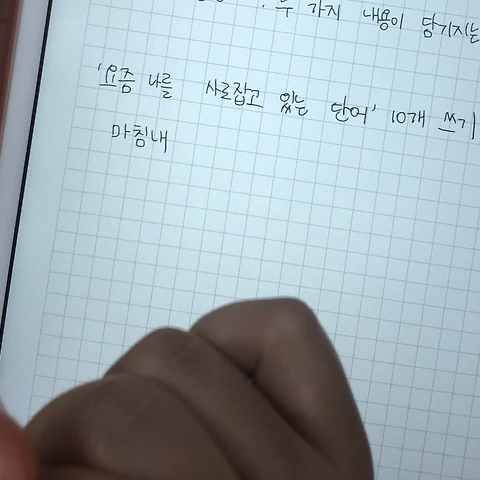 두 가지 내용이 당기지는
'요즘 나를 사로잡고 있는 단어' 10개 쓰기
마침내